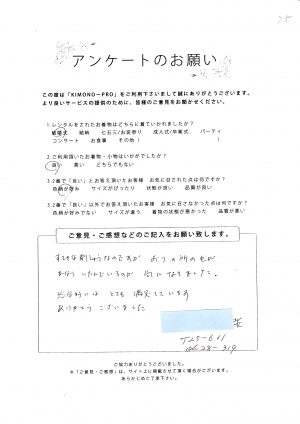 25
アンケートのお願い
この度は「KIMONO-PRO」をご利用下さいまして誠にありがとうございます。
より良いサービスの提供のために、皆様のご意見をお聞かせください。
1.レンタルをされたお着物はどちらに着ていかれましたか?
結婚式 結納 七五三/お宮参り 成人式/卒業式 パーティ
コンサート お食事 その他( )
2.ご利用頂いたお着物・小物はいかがでしたか?
良い 悪い どちらでもない
3.2番で「良い」とお答え頂いたお客様 お気に召された点は何ですか?
色柄が好み サイズがぴったり 状態が良い 品質が良い
3.2番で「良い」以外でお答え頂いたお客様 お気に召さなかった点は何ですか?
色柄が好みでない サイズが違う 着物の状態が悪かった 品質が悪い
ご意見・ご感想などのご記入をお願い致します。
すてきな刺しゅうなのですが おりの所の毛が
かなり いたんでいるのが 気になりました。
総合的には とても 満足しています
ありがとう ございました
ご協力ありがとうございました。
※「ご意見・ご感想」は、サイト上に掲載させて頂く場合がございます。
あらかじめご了承下さい。